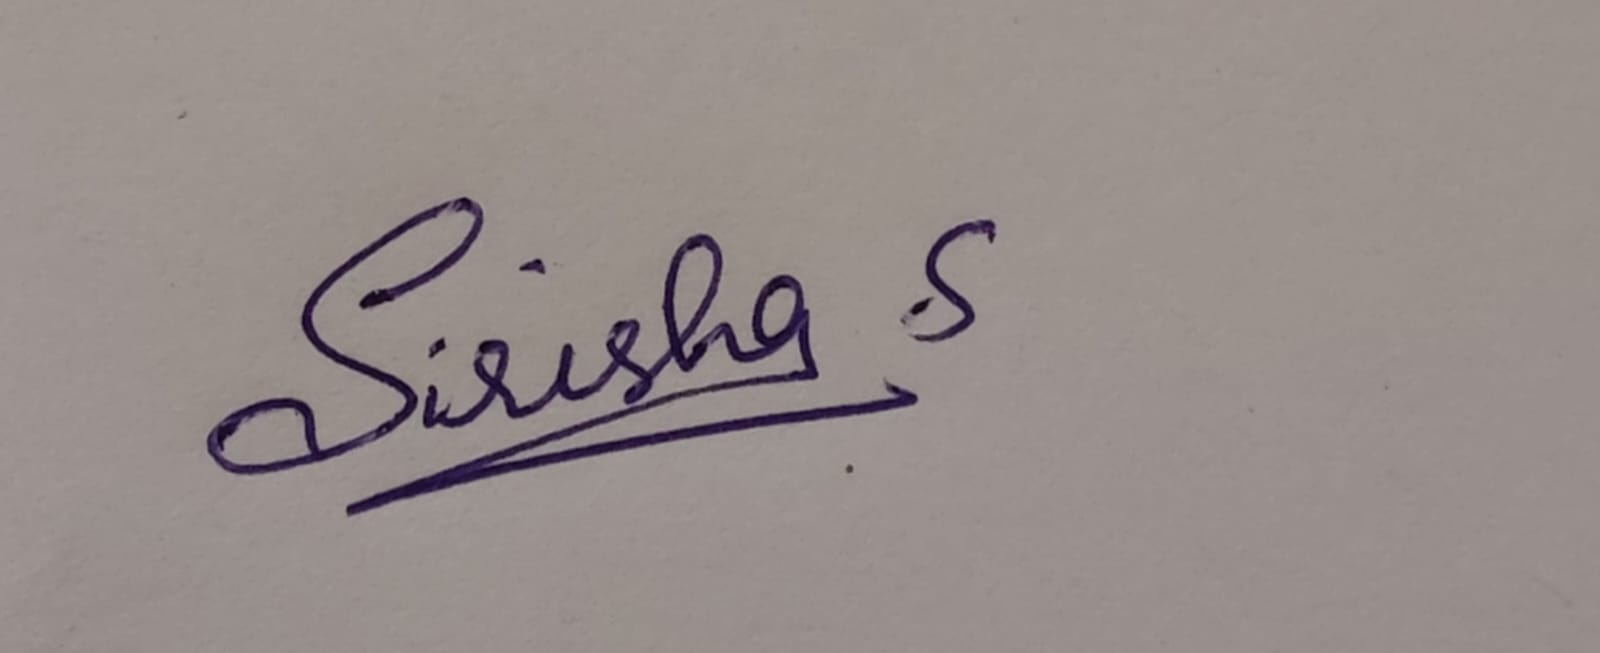 Sirisha S